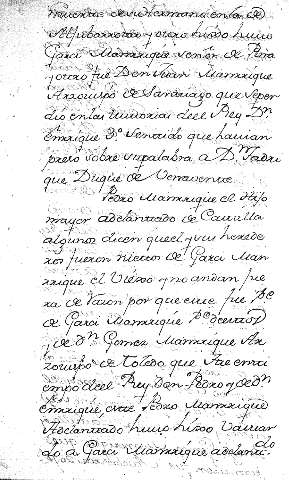 muerte de su hermano en la de
Aljubarrota y otro hixo huuo
Garci Manrrique señor de
y otro fue Don Juan Manrrique
Arzouispo de Santiago que se per
dio en las tutorias del Rey Dⁿ
enrrique 3º sentido que hauian
preso sobre su palabra a Dⁿ Fadri
que Duque de Venauente
Pedro Manrrique el Hijo
mayor adelantado de Castilla
algunos dicen quel y sus herede
ros fueron nietos de Garci Man
rrique el Viexo y no andan fue
ra de razon por que este fue
de Garci Manrrique
y de Dⁿ Gomez Manrrique Ar
zouispo de Toledo que fue en ti
empo del Rey don Pedro y de Dⁿ
enrrique este Pedro Manrrique
Adelantado huuo hixo Vastar
do a Garci Manrrique adelanta
do